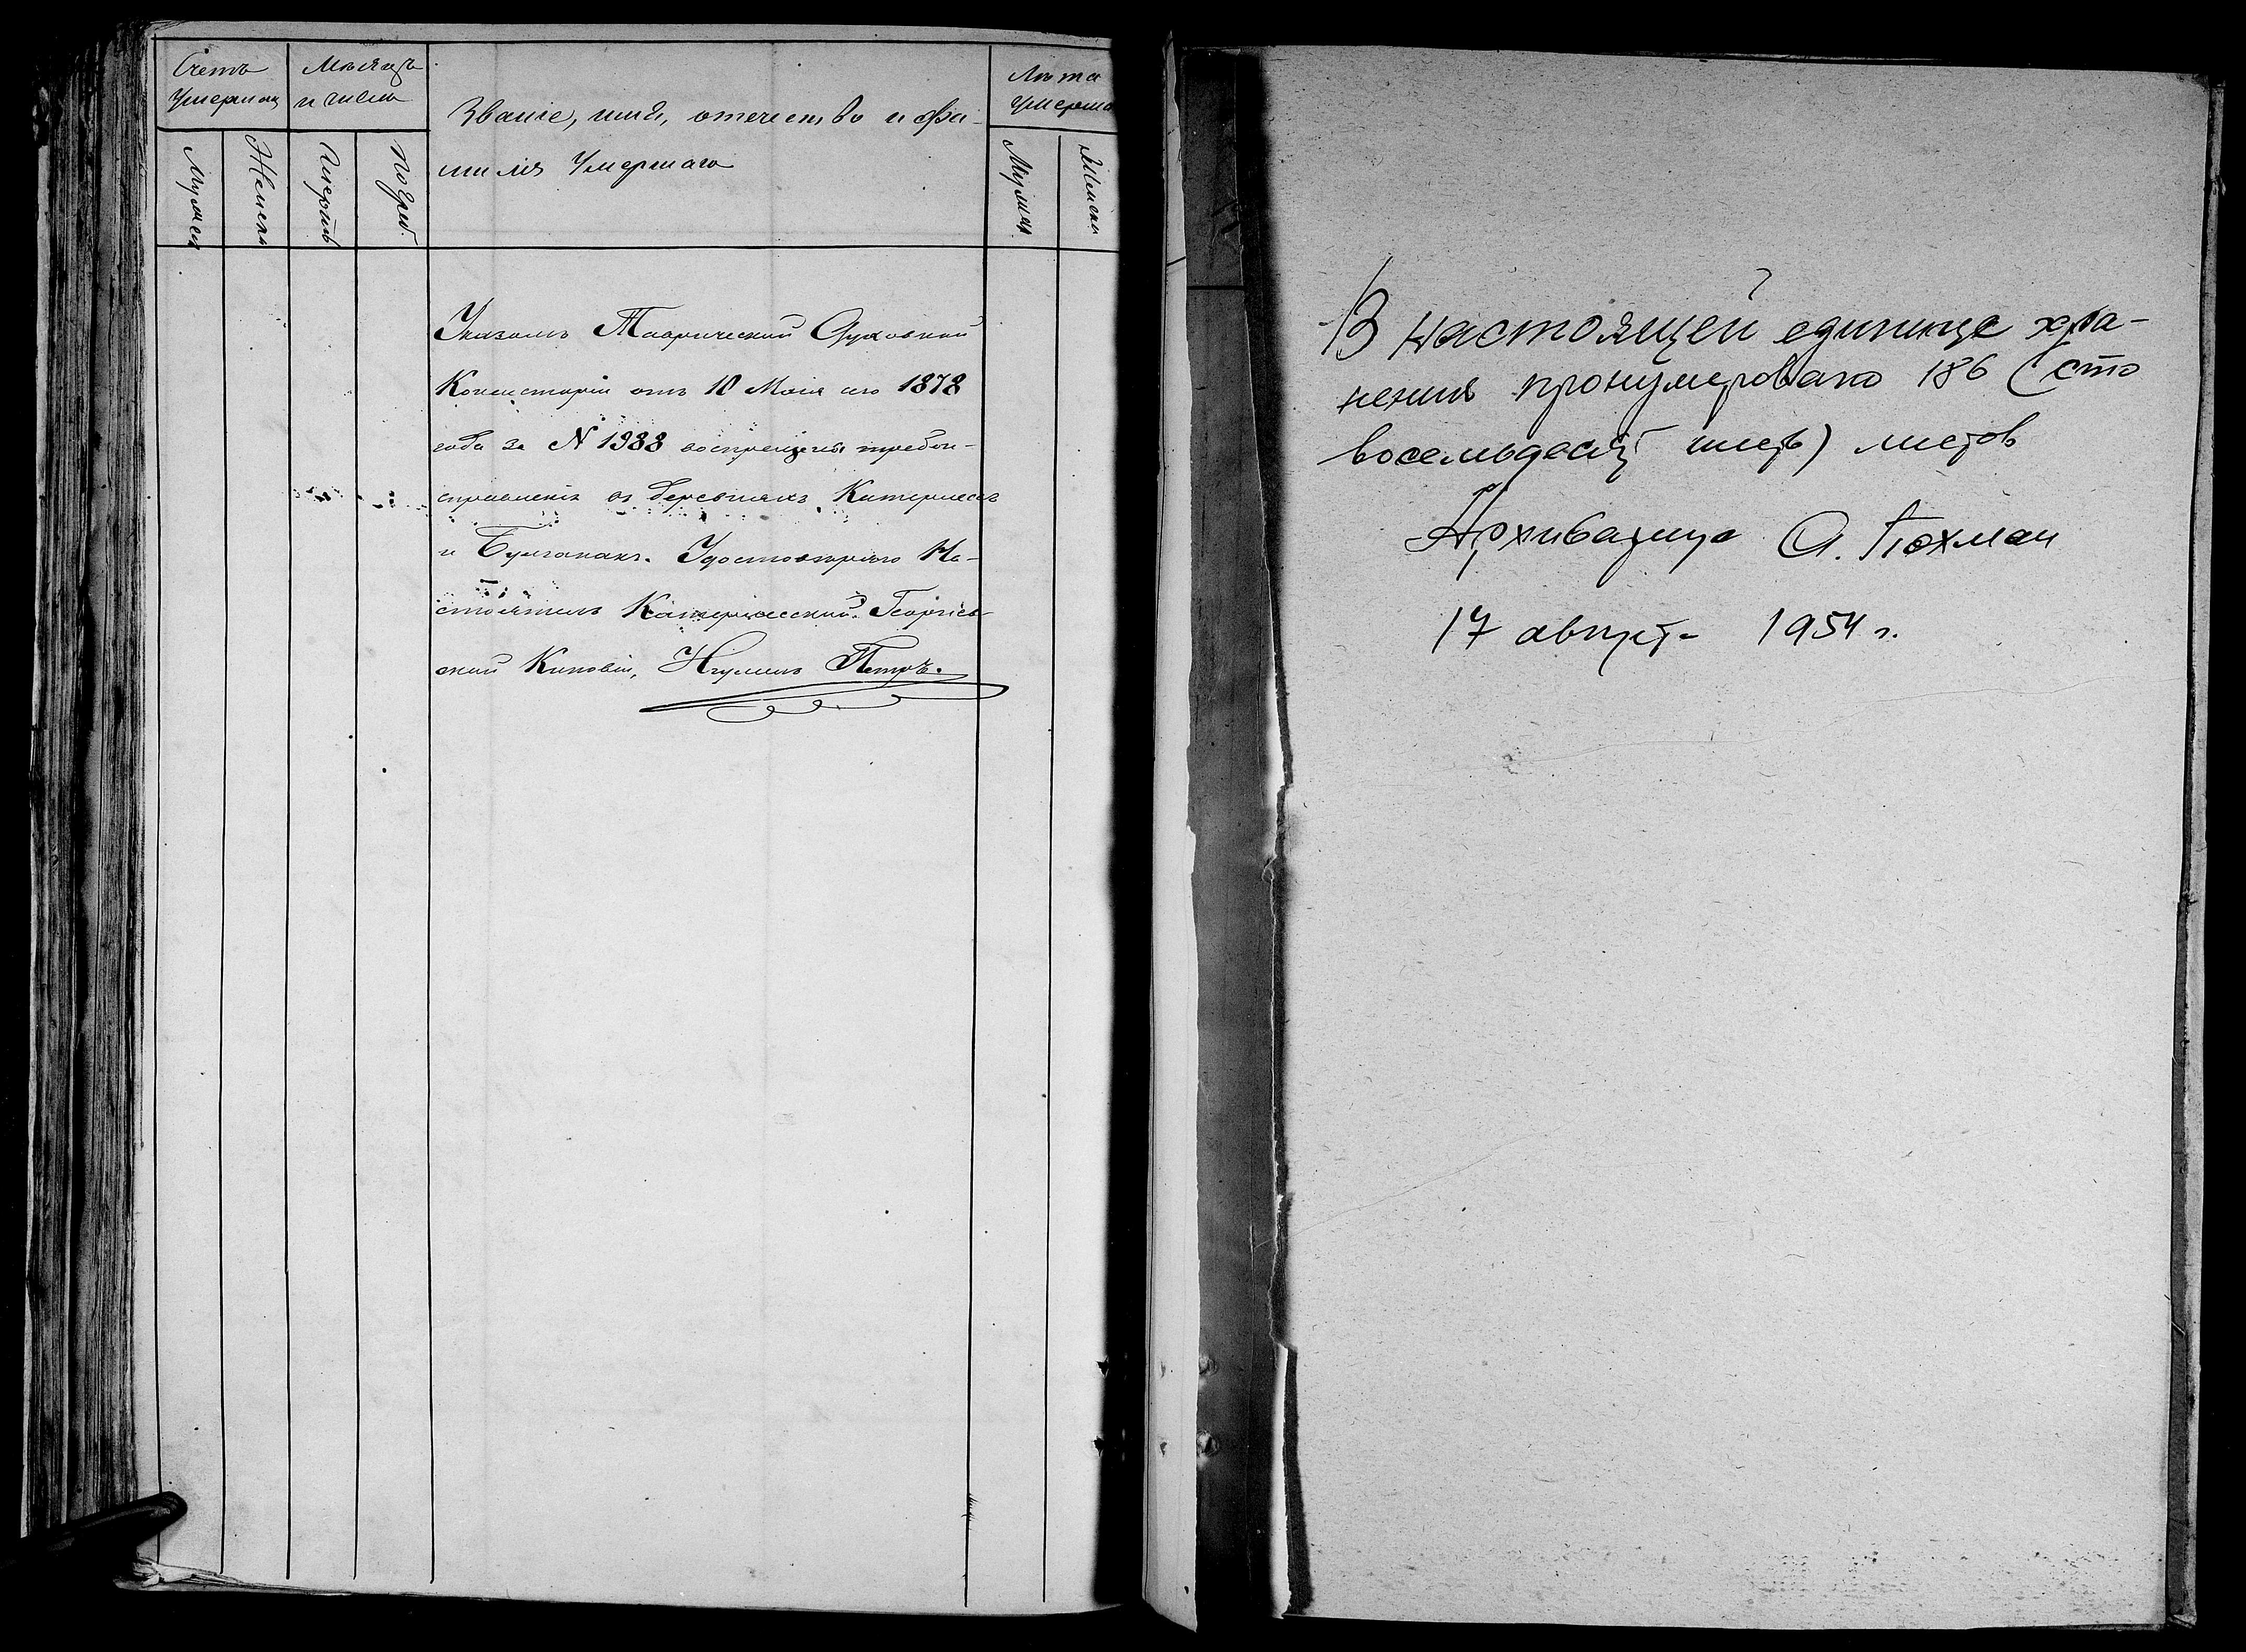 Счетъ
Умершихъ
Мѣсяцъ
и число
Званіе, имя, отечество и фа-
милія Умершаго
Лѣта
Умерша
Мужеск
Женски
Смерти
Погреб.
Мужск
Женски
Указомъ Таврической Духовной
Консисторіи отъ 10 Маія сго 1878
года за N 1988 воспрещены требои-
справленія въ деревняхъ Катерлесъ
и Булганакъ. Удостовѣряю На-
стоятель Катерлесской Георгіев-
ской Киновіи, Игуменъ Петръ.
В настоящей единице хра-
нения пронумеровано 186 (сто
восемьдесят шесть) листов
Архивариус
17 август 1954 г.